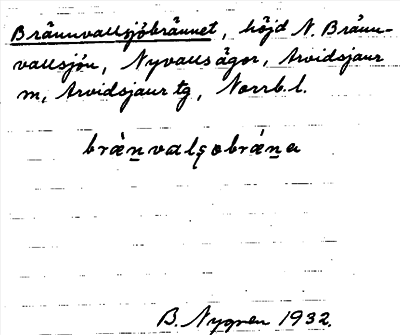 Brännvallsjöbrännet, höjd N. Bränn-
vallsjön, Nyvalls ägor, Arvidsjaur
m, Arvidsjaur tg, Norrb. l.
brὰn̲valşobrán̲a
B. Nygren 1932.